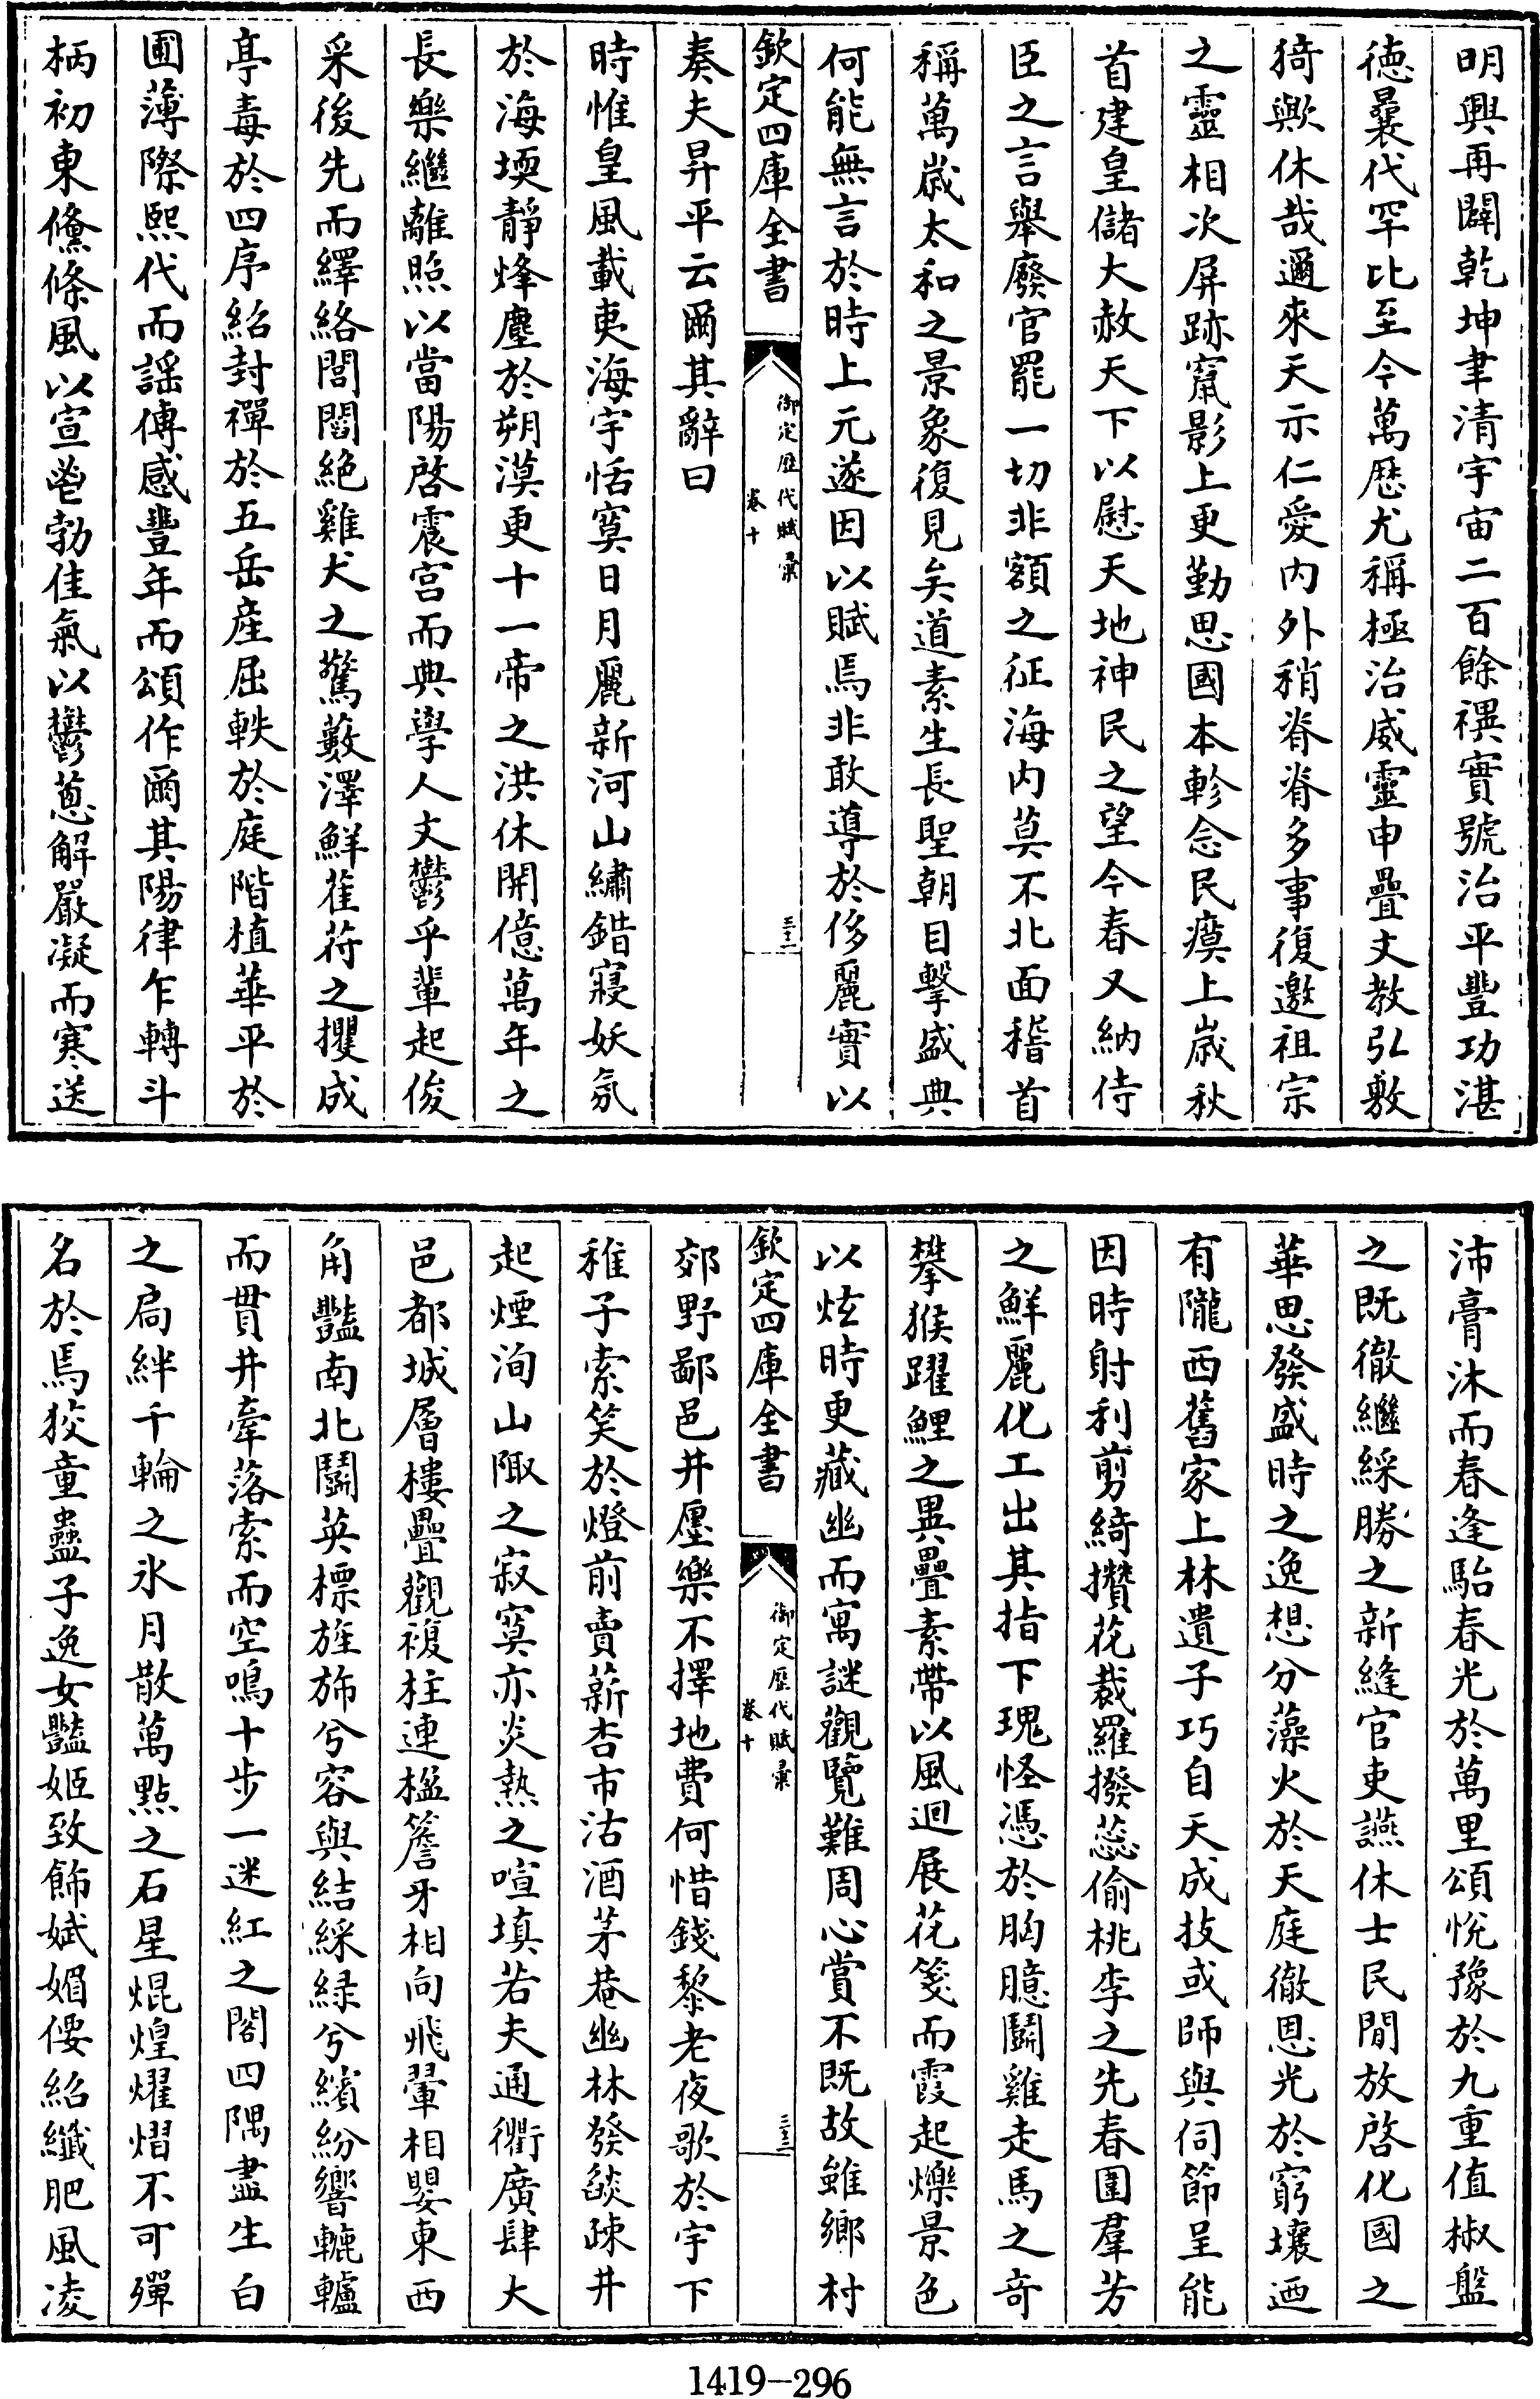 明興再闢乾坤聿清宇宙二百餘禩實號治平豐功湛
德曩代罕比至今萬歷尤稱極治威靈申疊文教弘敷
猗歟休哉邇來天示仁愛内外稍脊脊多事復邀祖宗
之靈相次屏跡竄影上更勤思國本軫念民瘼上嵗秋
首建皇儲大赦天下以慰天地神民之望今春又納侍
臣之言舉廢官罷一切非額之征海内莫不北面稽首
稱萬嵗太和之景象復見矣道素生長聖朝目擊盛典
何能無言於時上元遂因以賦焉非敢導於侈麗實以
欽定四庫全書
御定歷代賦彙
卷十
三十二
奏夫昇平云爾其辭曰
時惟皇風載夷海宇恬寞日月麗新河山繡錯寢妖氛
於海堧靜烽塵於朔漠更十一帝之洪休開億萬年之
長樂繼離照以當陽啓震宫而典學人文鬱乎輩起俊
采後先而繹絡閭閻絶雞犬之驚藪澤鮮萑苻之攫成
亭毒於四序紹封禪於五岳産屈軼於庭階植華平於
圃薄際熙代而謡傳感豐年而頌作爾其陽律乍轉斗
柄初東儵條風以宣鬯勃佳氣以鬱葱解嚴凝而寒送
沛膏沐而春逢駘春光於萬里頌悅豫於九重值椒盤
之既徹繼綵勝之新縫官吏讌休士民閒放啓化國之
華思發盛時之逸想分藻火於天庭徹恩光於窮壤迺
有隴西舊家上林遺子巧自天成技或師與伺節呈能
因時射利剪綺攢花裁羅撥蕊偷桃李之先春圍羣芳
之鮮麗化工出其指下瑰怪憑於胸臆鬬雞走馬之奇
攀猴躍鯉之異疊素帶以風迴展花箋而霞起爍景色
以炫時更藏幽而寓謎觀覽難周心賞不既故雖鄉村
欽定四庫全書
御定歷代賦彙
卷十
三十三
郊野鄙邑井廛樂不擇地費何惜錢黎老夜歌於宇下
稚子索笑於燈前賣薪杏市沽酒茅巷幽林發燄疎井
起煙洵山陬之寂寞亦炎熱之喧填若夫通衢廣肆大
邑都城層樓疊觀複柱連楹簷牙相向飛翬相嬰東西
角豔南北鬬英標旌斾兮容與結綵緑兮繽紛響轆轤
而貫井牽落索而空鳴十步一迷紅之閣四隅盡生白
之扃絆千輪之氷月散萬點之石星焜煌燿熠不可殫
名於焉狡童蠱子逸女豔姬致飾娬媚偠紹纖肥風凌
1419-296